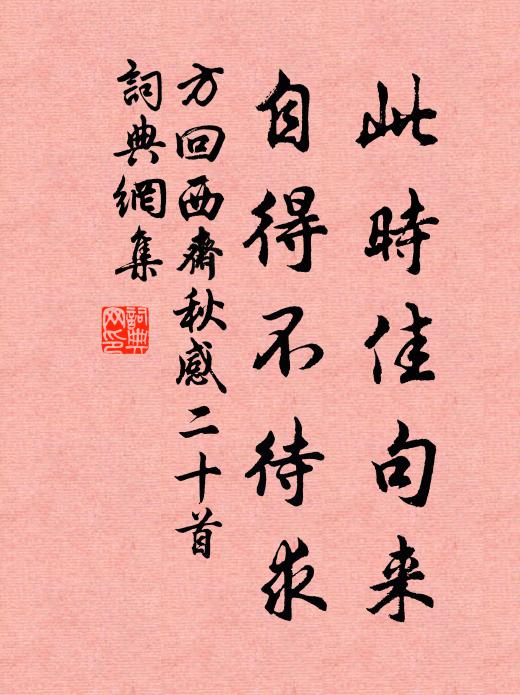 此時佳句来
自得不待求
方回西齋秋感二十首
詞典網集
詞典网印